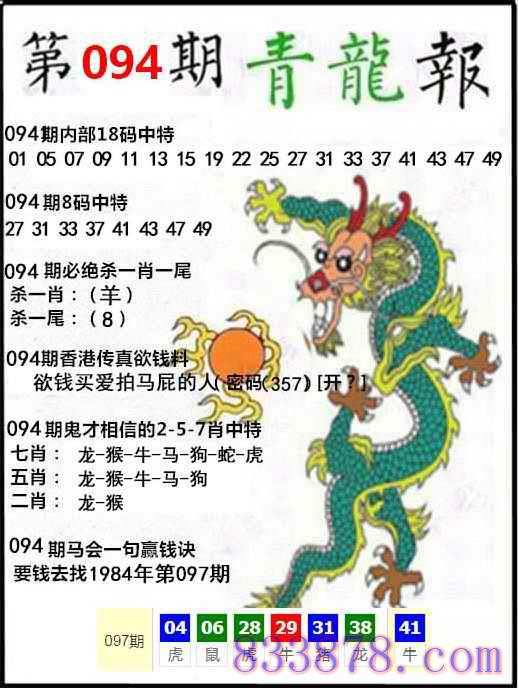 第094期青龍報
094期内部18码中特
01 05 07 09 11 13 15 19 22 25 27 31 33 37 41 43 47 49
094期8码中特
27 31 33 37 41 43 47 49
094期必绝杀一肖一尾
杀一肖：（羊）
杀一尾：（8）
094期香港传真欲钱料
欲钱买爱拍马屁的人(密码(357)[开？]
094期鬼才相信的2-5-7肖中特
七肖： 龙-猴-牛-马-狗-蛇-虎
五肖： 龙-猴-牛-马-狗
二肖： 龙-猴
094期马会一句赢钱诀
要钱去找1984年第097期
097期 04 06 28 29 31 38 41
虎 鼠 虎 牛 猪 龙 牛
833878.com